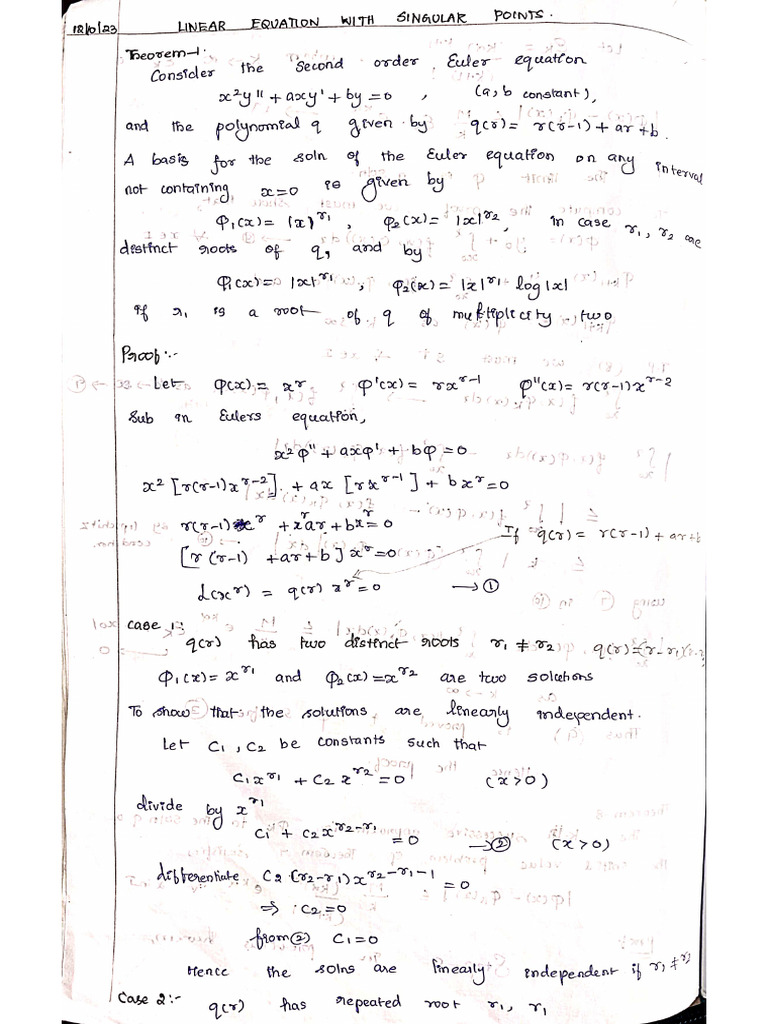 12/10/23 LINEAR EQUATION WITH SINGULAR POINTS.
Theorem-1:
Consider the second order Euler equation
x²y'' + axy' + by = 0 , (a, b constant),
and the polynomial q given by q(r) = r(r-1) + ar + b.
A basis for the soln of the Euler equation on any interval
not containing x=0 is given by
φ₁(x) = |x|^r₁ , φ₂(x) = |x|^r₂ , in case r₁, r₂ are
distinct roots of q, and by
φ₁(x) = |x|^r₁ , φ₂(x) = |x|^r₁ log|x|
if r₁ is a root of q of multiplicity two
Proof:-
Let φ(x) = x^r , φ'(x) = rx^r-1 φ''(x) = r(r-1)x^r-2
Sub in Eulers equation,
x²φ'' + axφ' + bφ = 0
x² [r(r-1)x^r-2] + ax [rx^r-1] + bx^r = 0
r(r-1)x^r + x^r ar + bx^r = 0
If q(r) = r(r-1) + ar+b
[r(r-1) + ar + b] x^r = 0
L(x^r) = q(r) x^r = 0 → ①
case 1:
q(r) has two distinct roots r₁ ≠ r₂ q(r) = (r-r₁)
φ₁(x) = x^r₁ and φ₂(x) = x^r₂ are two solutions
To show that the solutions are linearly independent.
Let c₁, c₂ be constants such that
c₁x^r₁ + c₂x^r₂ = 0 (x>0)
divide by x^r₁
c₁ + c₂x^r₂-r₁ = 0 → ② (x>0)
differentiate c₂ (r₂-r₁)x^r₂-r₁-1 = 0
⇒ c₂ = 0
from ② c₁ = 0
Hence the solns are linearly independent if r₁ ≠ r₂
Case 2:- q(r) has repeated root r₁, r₁